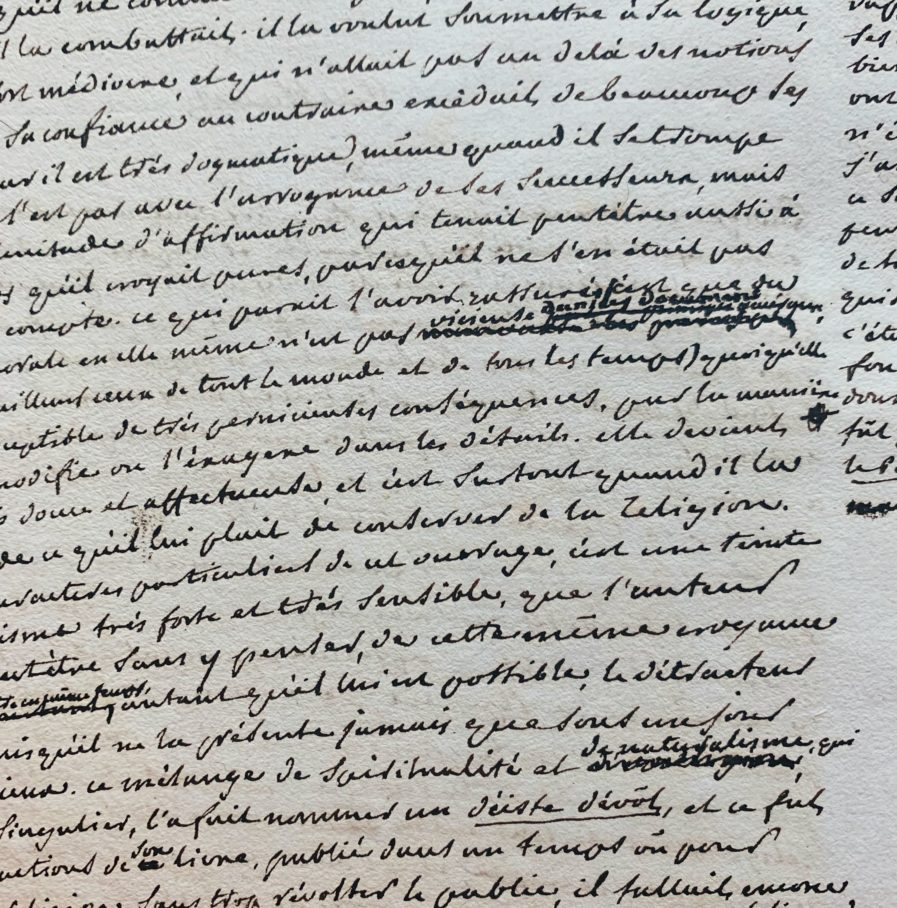 qu'il ne
il la combattait. il la voulut soumettre à sa logique
fort médiocre, et qui n'allait pas au delà des notions
sa confiance au contraire excédait de beaucoup ses
car il est très dogmatique), même quand il se trompe
l'est pas avec l'arrogance de ses successeurs, mais
d'affirmation qui tenait peutêtre aussi à
qu'il croyait pures, parcequ'il ne s'en était pas
compte. ce qui parait l'avoir rassuré, c'est que du
morale en elle même n'est pas vicieuse
ailleurs ceux de tout le monde et de tous les temps) quoiqu'elle
susceptible de très pernicieuses conséquences, par la manière
modifie ou l'exagere dans les détails. elle devient
douce et affectueuse, et c'est surtout quand il la
de ce qu'il lui plait de conserver de la Religion.
caracteres particuliers de cet ouvrage, c'est une teinte
isme très forte et très sensible, que l'auteur
peutêtre sans y penser, de cette même croyance
en même temps, autant qu'il lui est possible, le détracteur
puisqu'il ne la présente jamais que sous un jour
ce mélange de spiritualité et de naturalisme, qui
singulier, l'a fait nommer un déiste dévôt, et ce fut
de son livre, publié dans un temps où pour
sans trop révolter le public, il fallait encore
ses
bien
ont
j'a
de
qui
c'ét
fon
fût